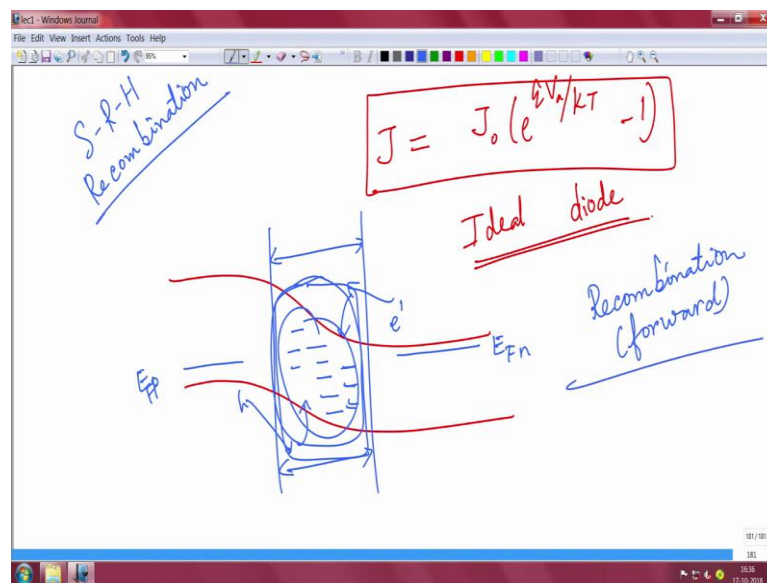 lec1 - Windows Journal
File Edit View Insert Actions Tools Help
S-R-H
Recombination
J = J₀(e^{qVₐ/kT} -1)
Ideal diode
Recombination
(forward)
e⁻
E_{Fn}
E_{Fp}
h
181 / 181
181
16:36
17-10-2018